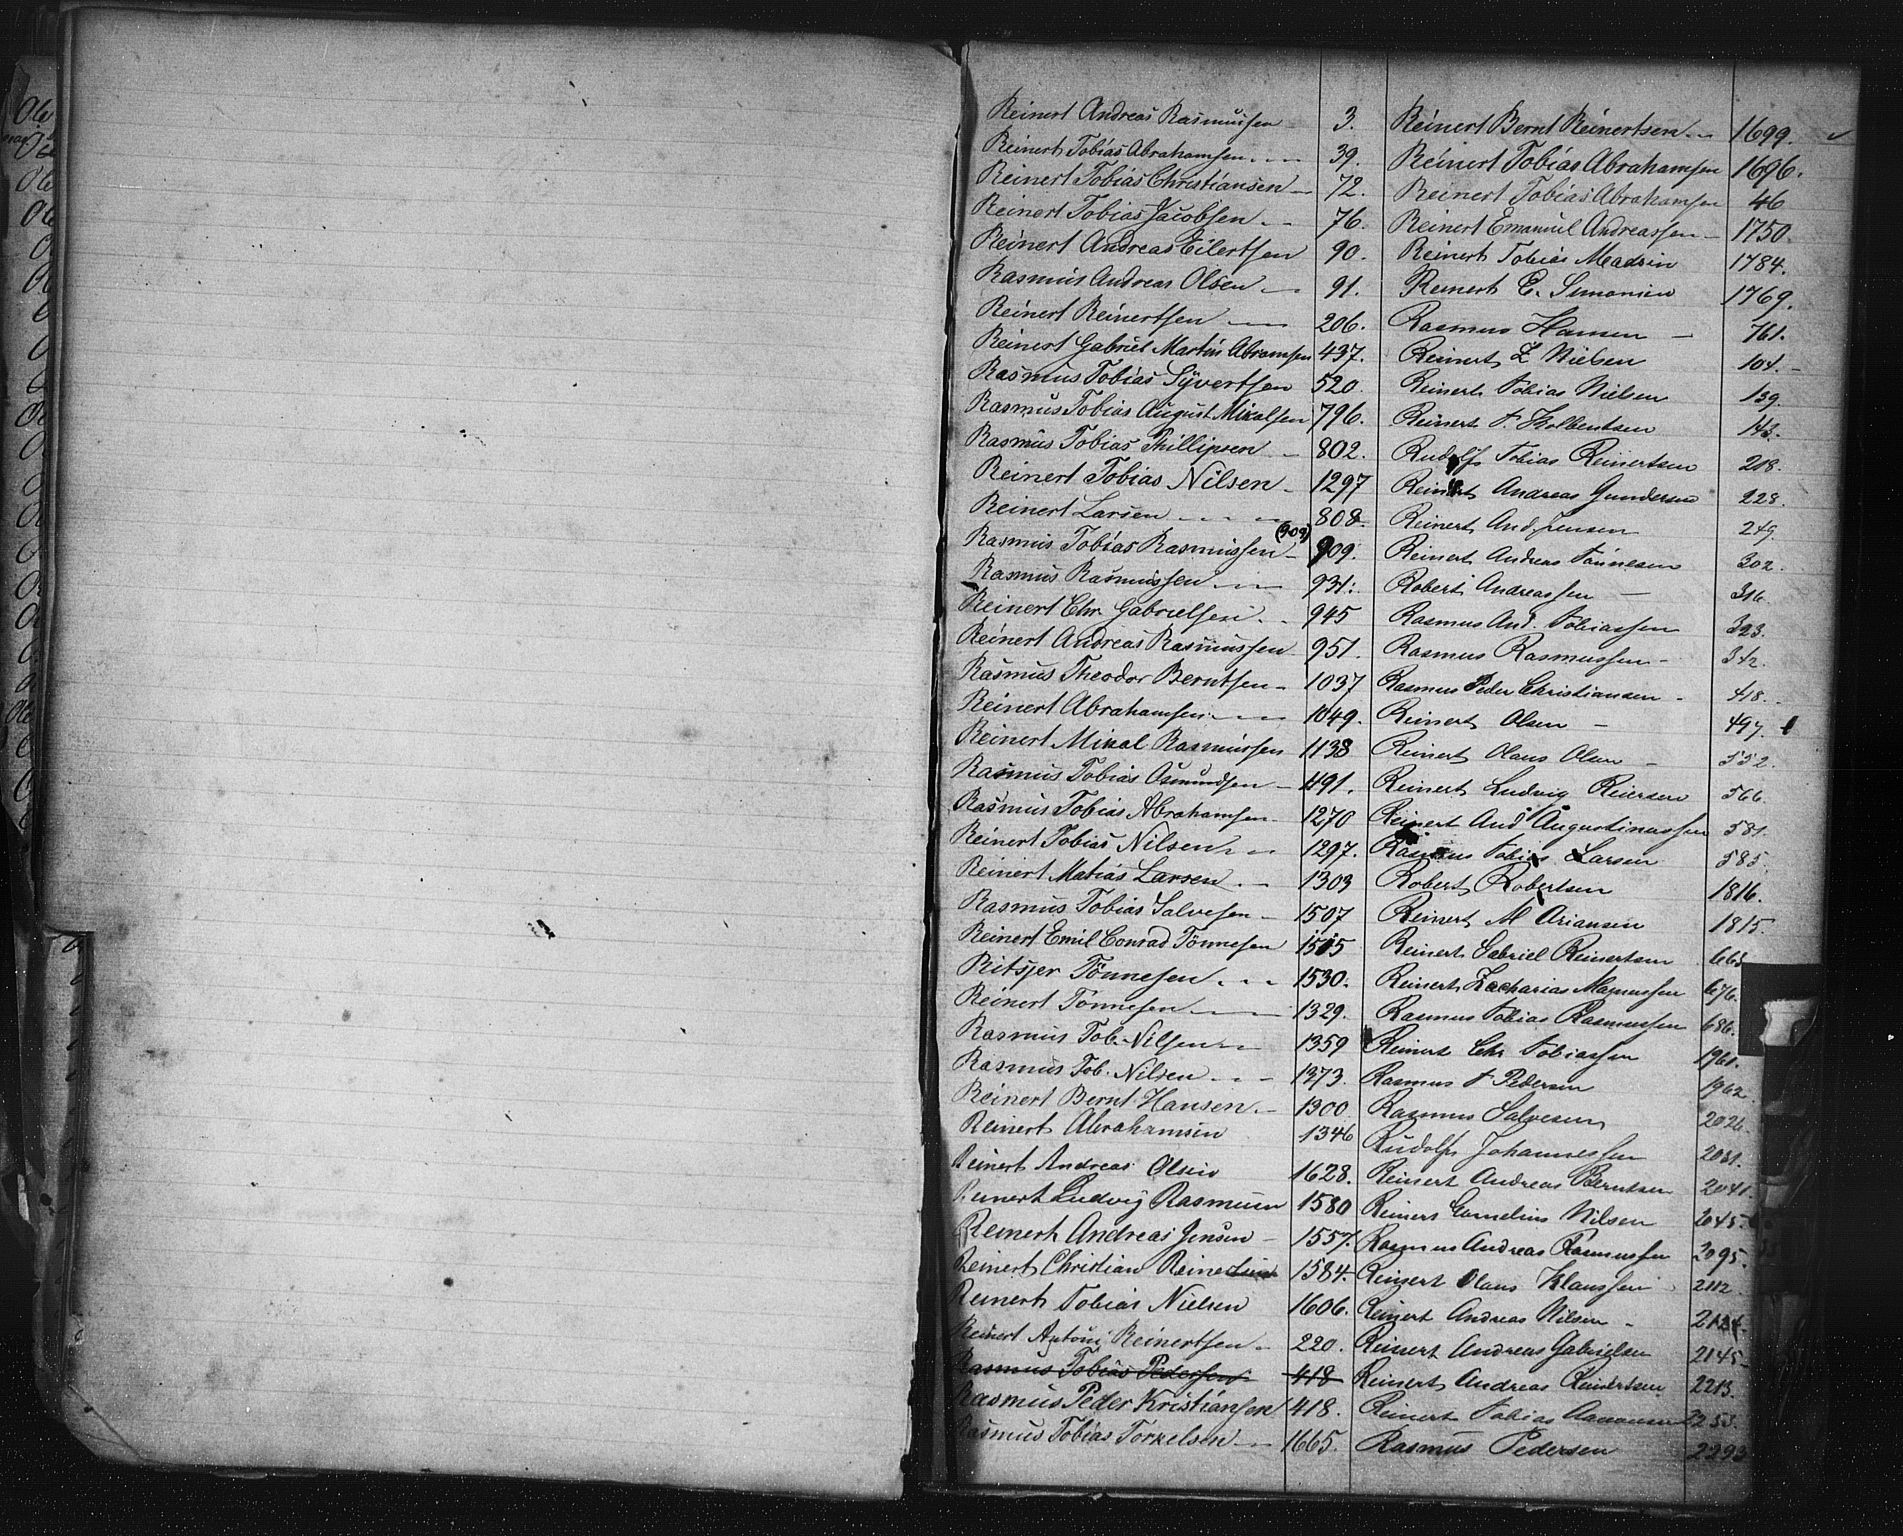 Reinert Andreas Rasmussen 3.
Reinert Tobias Abrahamsen 39.
Reinert Tobias Christiansen 72.
Reinert Tobias Jacobsen 76.
Reinert Andreas Eilertsen 90.
Rasmus Andreas Olsen 91.
Reinert Reinertsen 206.
Reinert Gabriel Martin Abramsen 437.
Rasmus Tobias Syvertsen 520.
Rasmus Tobias August Mikalsen 796.
Rasmus Tobias Phillipsen 802.
Reinert Tobias Nilsen 1297
Reinert Larsen 808.
Rasmus Tobias Rasmussen (909) 909.
Rasmus Rasmussen 931.
Reinert Chr Gabrielsen 945
Reinert Andreas Rasmussen 951.
Rasmus Theodor Berntsen 1037
Reinert Abrahamsen 1049.
Reinert Mikal Rasmussen 1138
Rasmus Tobias Osmundsen 491.
Rasmus Tobias Abrahamsen 1270
Reinert Tobias Nilsen 1297.
Reinert Matias Larsen 1303
Rasmus Tobias Salvesen 1507
Reinert Emil Conrad Tönnesen 1515
Ritsjer Tönnesen 1530.
Reinert Tönnesen 1329.
Rasmus Tob. Nilsen 1359
Rasmus Tob. Nilsen 1373.
Reinert Bernt Hansen 1300
Reinert Abrahamsen 1346
Reinert Andreas Olsen 1628.
Reinert Ludvig Rasmusen 1580
Reinert Andreas Jensen 1557.
Reinert Christian Reinertsen 1584.
Reinert Tobias Nielsen 1606.
Reinert Antoni Reinertsen 220.
Rasmus Tobias Pedersen 418
Rasmus Peder Kristiansen 418.
Rasmus Tobias Torkelsen 1665.
Reinert Bernt Reinertsen 1699.
Reinert Tobias Abrahamsen 1696.
Reinert Tobias Abrahamsen 46
Reinert Emanuel Andreassen 1750.
Reinert Tobias Madsen 1784.
Reinert E. Simonsen 1769.
Rasmus Hansen 761.
Reinert Z Nielsen 104.
Reinert Tobias Nielsen 139.
Reinert T. Kolbentsen 143.
Rudolf Tobias Reinertsen 218.
Reinert Andreas Gundersen 228.
Reinert And Jensen 249.
Reinert Andreas Tönnesen 302.
Robert Andreassen 316.
Rasmus And. Tobiassen 323.
Rasmus Rasmussen 342.
Rasmus Peder Christiansen 418.
Reinert Olsen 497.
Reinert Olaus Olsen 552.
Reinert Ludvig Reiersen 566.
Reinert And Augustinussen 581.
Rasmus Tobias Larsen 585.
Robert Robertsen 1816.
Reinert M Ariansen 1815.
Reinert Gabriel Reinertsen 663
Reinert Zacharias Magnussen 676.
Rasmus Tobias Rasmussen 686.
Reinert Chr Tobiassen 1961.
Rasmus T Pedersen 1962.
Rasmus Salvesen 2026.
Rudolf Johannessen 2031.
Reinert Andreas Berntsen 2041.
Reinert Cornelius Nilsen 2045.
Rasmus Andreas Rasmussen 2095.
Reinert Olaus Klaussen 2112.
Reinert Andreas Nilsen 2124.
Reinert Andreas Gabrielsen 2145
Reinert Andreas Reinertsen 2213.
Reinert Tobias Aanonsen 2253.
Rasmus Pedersen 2293